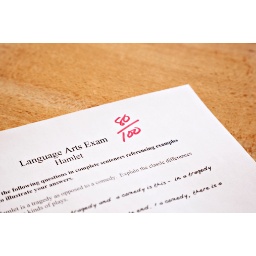 80
100
Language Arts Exam
Hamlet
the following questions in complete sentences referencing examples
illustrate your answers.
Hamlet is a tragedy as opposed to a comedy. Explain the classic differences
kinds of plays.
tragedy and a comedy is this - in a tragedy
and. I a comedy, there is a